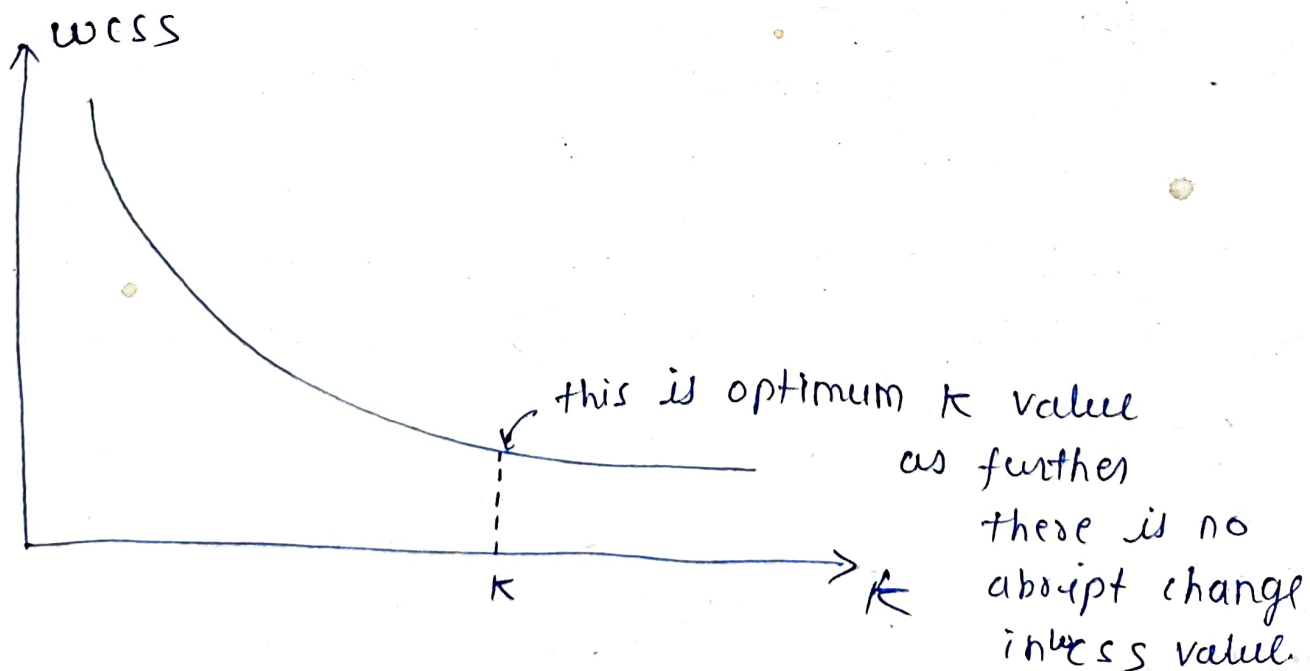 wcss
this is optimum k value
as further
there is no
abrupt change
in wcss value.
K
K